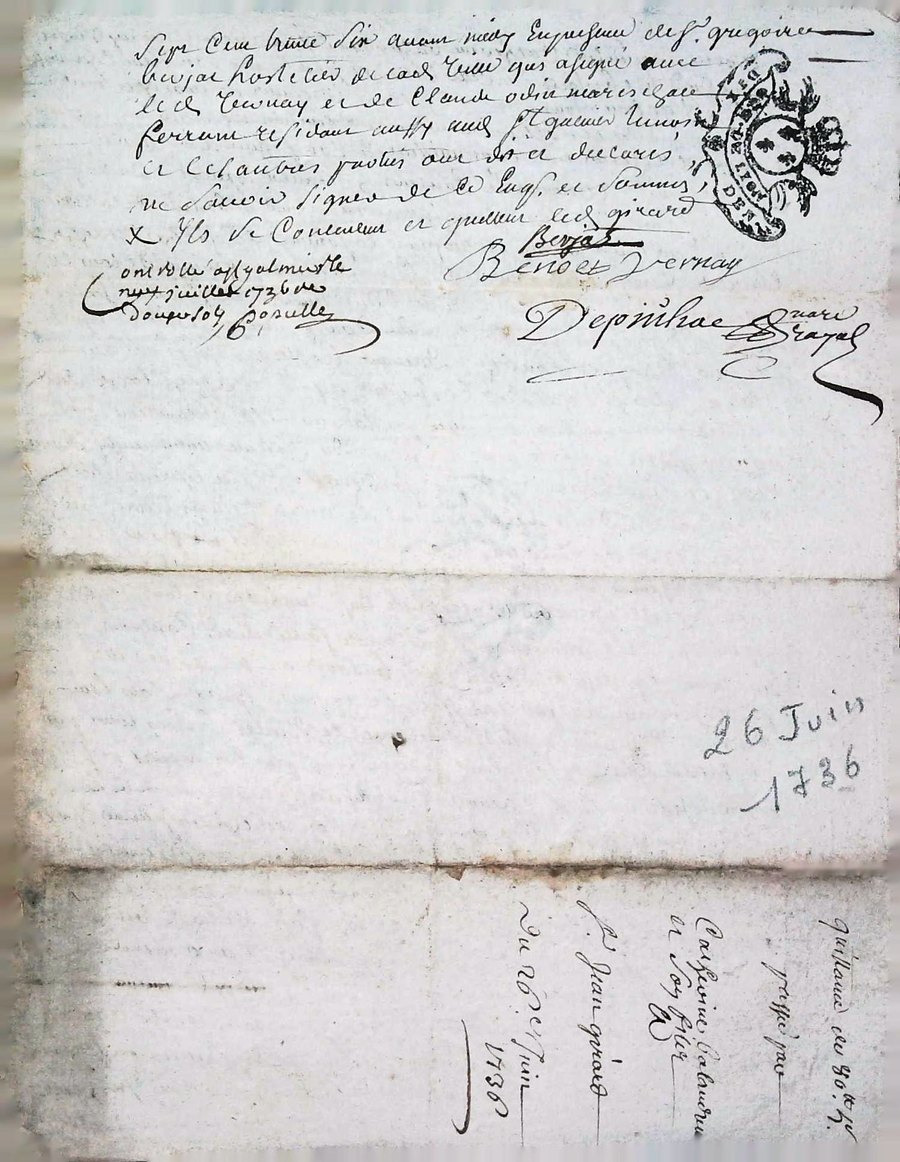 sept cent trente six avant midy En presence de Sr. gregoire
berjat hostelier de lad ville qui a signé avec
led vernay et de Claude odin mareschal
ferrant residant aussy aud St galmier
et les autres parties ont dit et declaré
ne Scavoir signer de ce Enqs. et Sommés
x Ils se Contentent et quittent led girard
Berjat
Benoit Vernay
ontrollé a St galmier le
neuf juillet 1736 Re
Douze sols
Depinhac
nore
royal
GEN DE LYON
26 Juin
1736
quittance de 80tt
passé par
Catherine Calandre
et Son fils
a
Sr. Jean girard
Du 26e Juin
1736